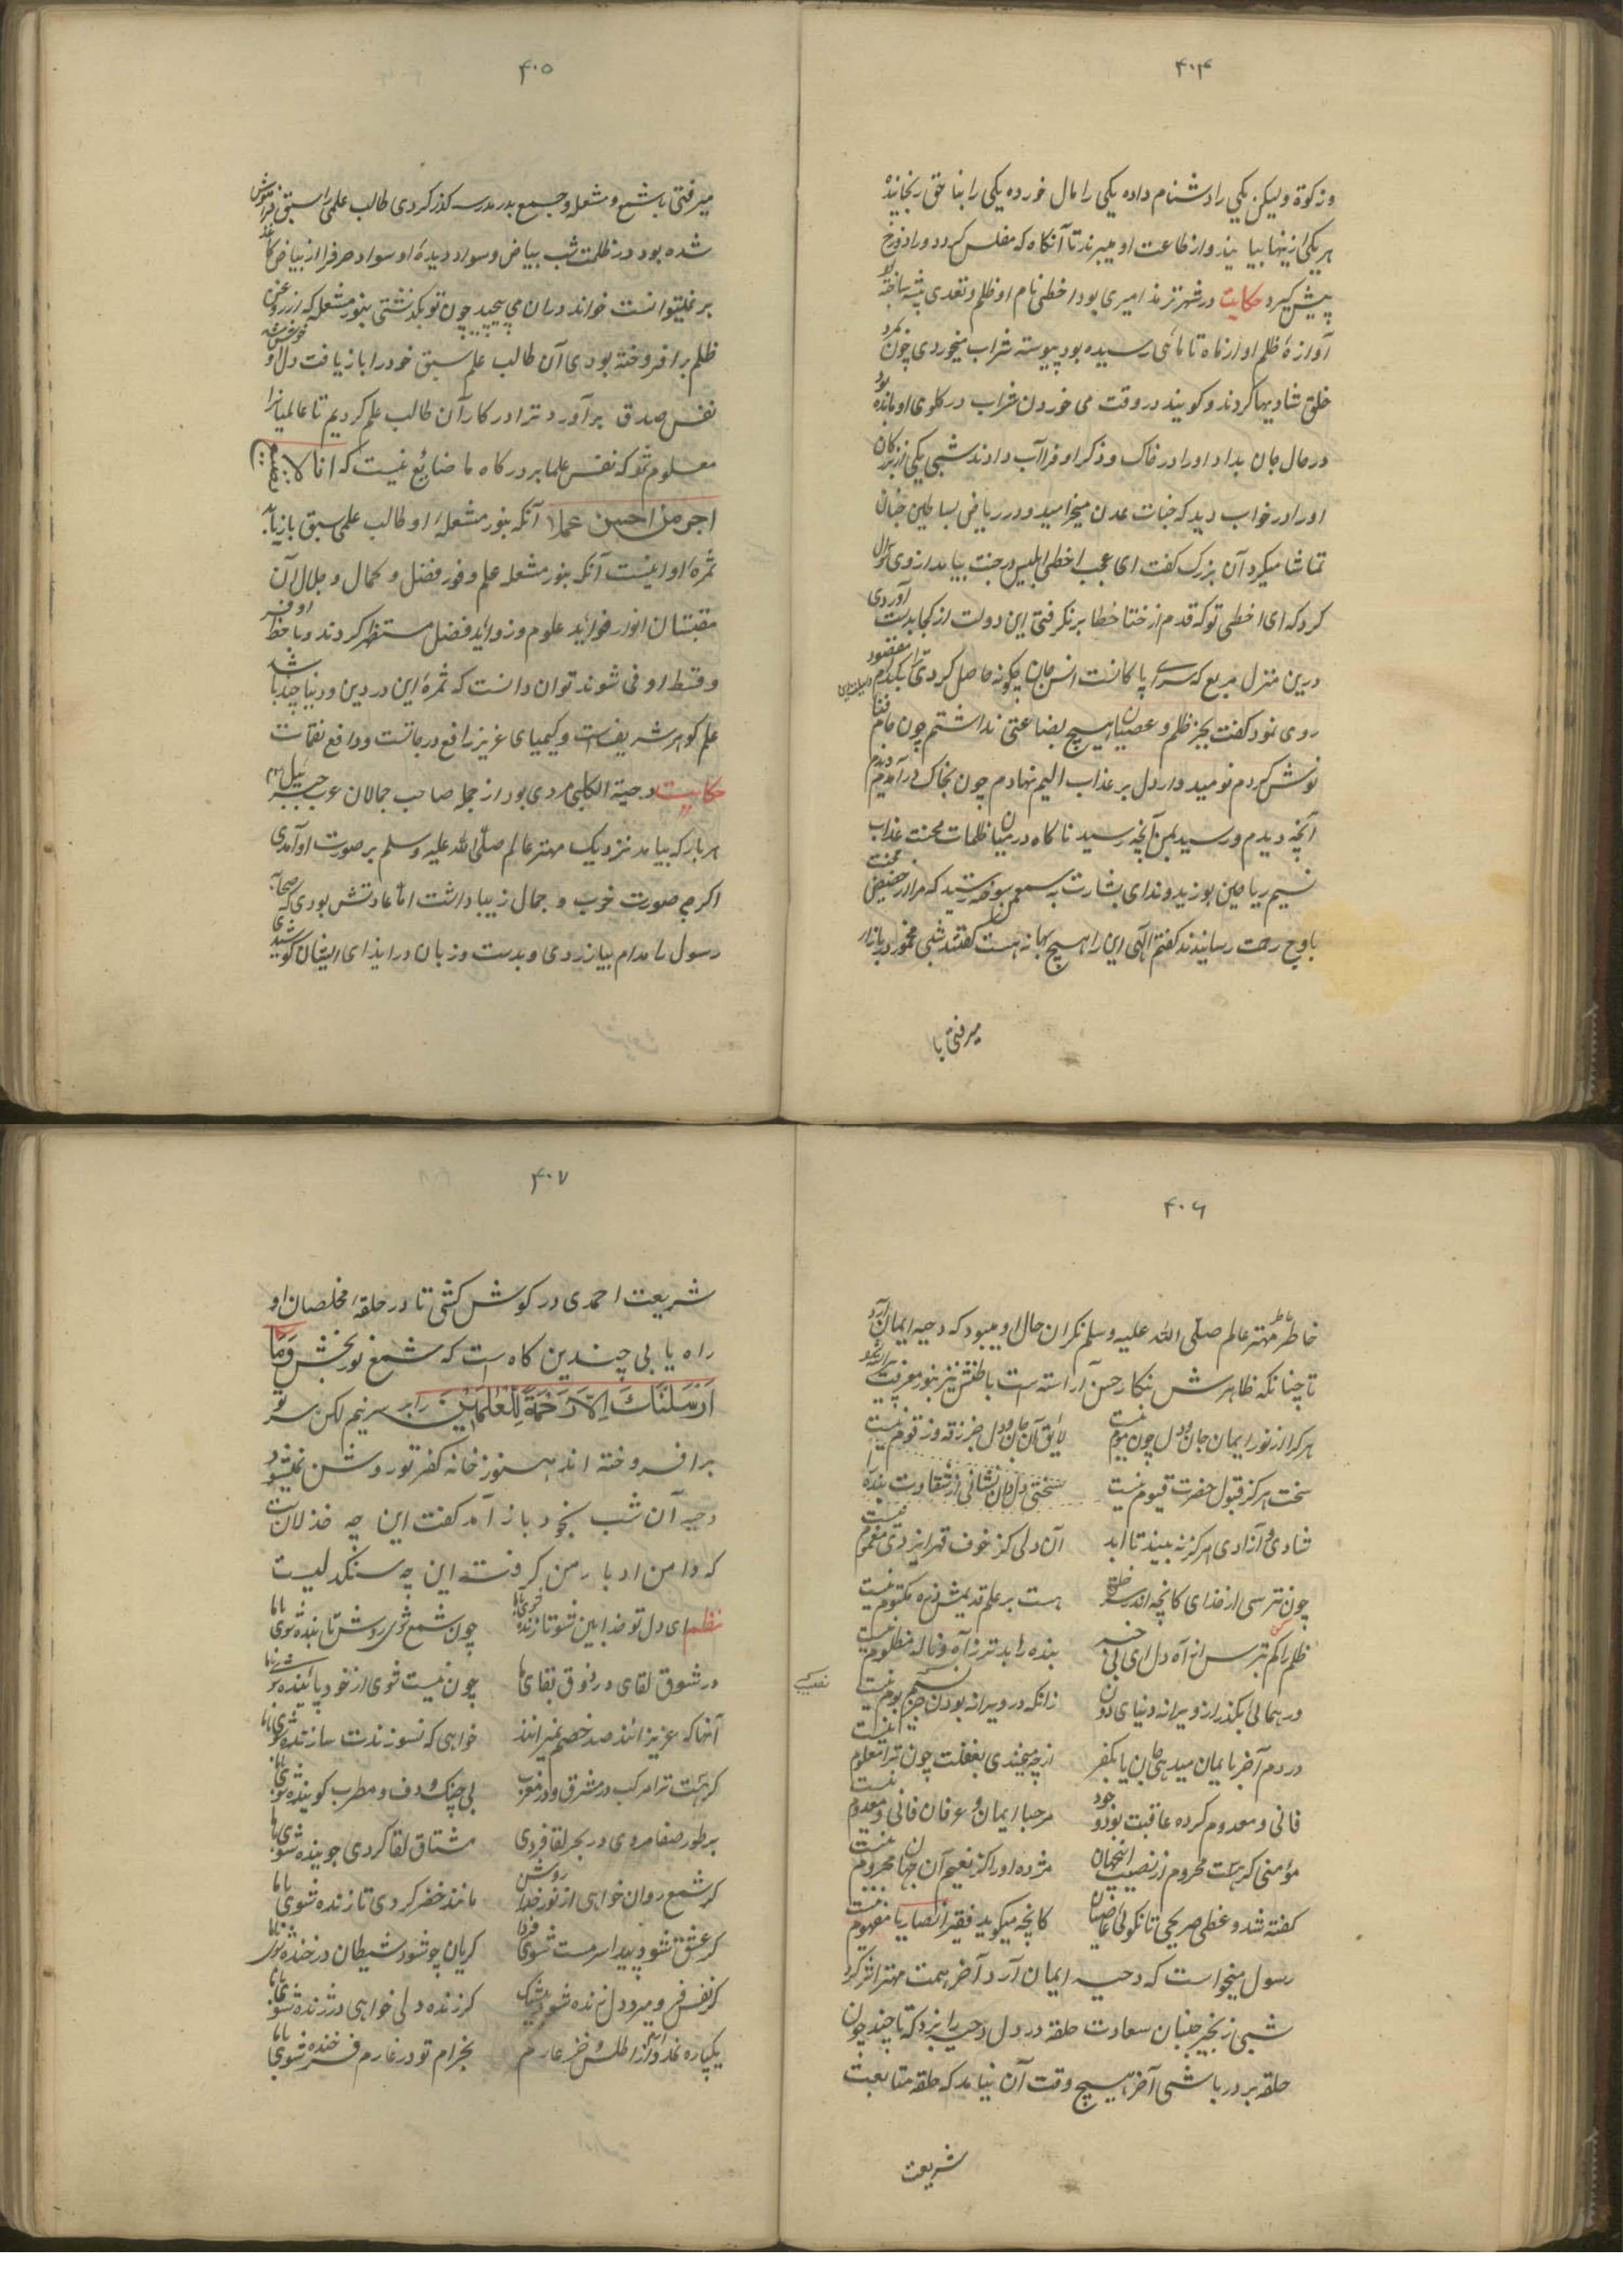 ۴۰۴
وزکوة ولیکن یکی را دشنام داده یکی را مال خورده یکی را بناحق رنجانیده
هر یکی ازینها بیایند و از طاعت او میبرند تا آنکاه که مفلس کردد و راه دوزخ
پیش کیرد حکایت در شهر ترمذ امیری بود اخطی نام او ظلم و تعدی پیشه ساخته
آوازهٔ ظلم او از ماه تا ماهی رسیده بود پیوسته شراب میخوردی چون بمرد
خلق شادیها کردند و کویند در وقت می خوردن شراب در کلوی او مانده بود
در حال جان بداد او را در خاک و ذکر او فرا آب دادند شبی یکی از بزرکان
او را در خواب دید که جنات عدن میخرامید و در ریاض بساطین جنان
تماشا میکرد آن بزرک کفت ای عجب اخطی ابلیس در جنت بیامد از وی سؤال
کرد که ای اخطی تو که قدم از خطا برنکرفتی این دولت از کجا بدست آوردی
درین منزل مربع که سرای پاکانست انس جان چکونه حاصل کردی بکدام
روی نمود کفت بجز ظلم و عصیان هیچ بضاعتی نداشتم چون جام فنا
نوش کردم نومیدوار دل بر عذاب الیم نهادم چون بخاک درآمدم دیدم
آنچه دیدم و رسید بمن آنچه رسید ناکاه در میان ظلمات محنت عذاب
نسیم ریاحین بوزید و ندای بشارت بسمع من رسید که مرا از حضیض محنت
باوج رحمت رسانیدند کفتم الهی این را هیچ بهانه هست کفتند شبی مخمور در بازار
میرفتی با
۴۰۵
میرفتی با شمع و مشعل و جمع بدر مدرسه کذر کردی طالب علمی را سبق فراموش
شده بود در ظلمت شب بیاض و سواد دیدهٔ او سواد حرف را از بیاض کاغذ
بر نمیتوانست خواند در آن می پیچید چون تو بکذشتی بنور مشعله که از روغن
ظلم برافروخته بودی آن طالب علم سبق خود را باز یافت دل او خوش شد
نفس صدق برآورد ترا در کار آن طالب علم کردیم تا عالمیانرا
معلوم شود که نفس علما بر درکاه ما ضائع نیست که انا لا نضیع
اجر من احسن عملا آنکه بنور مشعلهٔ او طالب علمی سبق باز یابد
ثمرهٔ او اینست آنکه بنور مشعله علم وفور فضل و کمال و جلال آن
مقتبسان انوار فوائد علوم و زوائد فضل مستظهر کردند و با حظ اوفر
و قسط اوفی شوند توان دانست که ثمرهٔ این در دین و دنیا چه باشد
علم کوهر شریفست و کیمیای عزیز رافع درجاتست و دافع نقمات
حکایت دحیة الکلبی مردی بود از جملهٔ صاحب جمالان عرب جبرئیل
هر بار که بیامد نزدیک مهتر عالم صلّی الله علیه وسلم بر صورت او آمدی
اکرچه صورت خوب و جمال زیبا داشت اما عادتش بودی که صحابه
رسول را مدام بیازردی و بدست و زبان در ایذای ایشان کوشیدی
۴۰۶
خاطر مهتر عالم صلّی الله علیه وسلم نکران حال او میبود که دحیه ایمان آرد
تا چنانکه ظاهرش بنکار حسن آراسته است باطنش نیز بنور معرفت آراسته کردد
هر کرا از نور ایمان جان و دل چون موم نیست لایق آن جان و دل جز زقه و زقوم نیست
سخت هرکز قبول حضرت قیوم نیست سختی دل دان نشانی از شقاوت بنده
شادی و آزادی هرکز نه بیند تا ابد آن دلی کز خوف قهر ایزدی مغموم نیست
چون نترسی از خدای کانچه اندر خلق هست بر علم قدیمش ذره مکتوم نیست
ظلم کم کن بترس از آه دل ای بی خبر بنده را بدتر ز آه و ناله مظلوم نیست
ور همائی بکذر از ویرانه دنیای دون زانکه در ویرانه بودن جز نصیب بوم نیست
در دم آخر بایمان میدهی جان یا بکفر از چه میخندی بغفلت چون ترا معلوم نیست
فانی و معدوم کرده عاقبت بود وجود مرحبا ایمان و عرفان فانی و معدوم نیست
مؤمنی کر هست محروم از نصیب اینجهان مژده او را کز نعیم آن جهان محروم نیست
کفته شد وعظی صریحی تا نکوئی عاصیان کانچه میکوید فقیر انصاریا مفهوم نیست
رسول میخواست که دحیه ایمان آرد آخر همت مهتر اثر کرد
شبی زنجیر جنبان سعادت حلقه در دل دحیه را بزد که تا چند چون
حلقه بر در باشی آخر هیچ وقت آن نیامد که حلقه متابعت
شریعت
۴۰۷
شریعت احمدی در کوش کشی تا در حلقهٔ مخلصان او
راه یابی چندین کاه است که شمع نور بخش وَمَا
اَرْسَلْنَاكَ اِلَّا رَحْمَةً لِلْعٰلَمِیْنَ را بر سر نیم لکن سر تو
برافروخته اند هنوز خانه کفر تو روشن نمیشود
دحیه آن شب بخود باز آمد کفت این چه خذلانست
که دامن ادبار من کرفته این چه سنکدلیست
نظم ای دل تو خدابین شو تا زنده شوی جانا چون شمع شوی روشن تا بنده شوی جانا
در شوق لقای در ذوق بقای ها چون نیست شوی از خود پائینده شوی جانا
آنها که عزیزانند صد خصم نمیرانند خواهی که نسوزندت سازنده شوی جانا
کر هست ترا مرکب در مشرق و در مغرب بی چنک و دف و مطرب کوینده شوی جانا
بر طور صفا مردی در بحر لقا فردی مشتاق لقا کردی جوینده شوی جانا
کر شمع روان خواهی از نور خدا روشن مانند خضر کردی تا زنده شوی جانا
کر عشق شود پیدا سرمست شوی فردا کریان چو شود شیطان در خنده شوی جانا
کر نفس فرو میرد دل زنده شود بیشک کر زنده دلی خواهی در زنده شو جانا
یکپاره نمد دارم از اطلس و خز عارم بخرام تو در غارم فرخنده شوی جانا